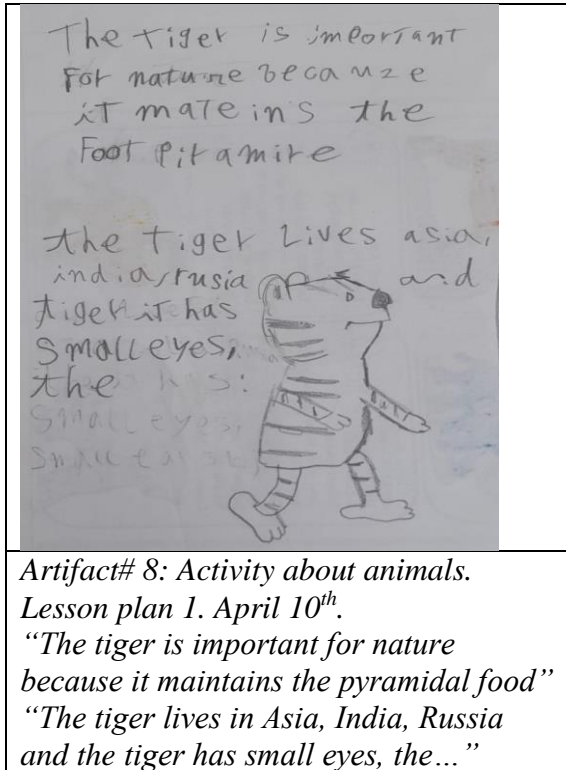 The tiger is important
For nature becauze
it mateins the
Foot piramire
the tiger Lives asia,
india, rusia and
tiger it has
small eyes,
the has:
small eyes,
small ears
Artifact# 8: Activity about animals.
Lesson plan 1. April 10th.
“The tiger is important for nature
because it maintains the pyramidal food”
“The tiger lives in Asia, India, Russia
and the tiger has small eyes, the…”